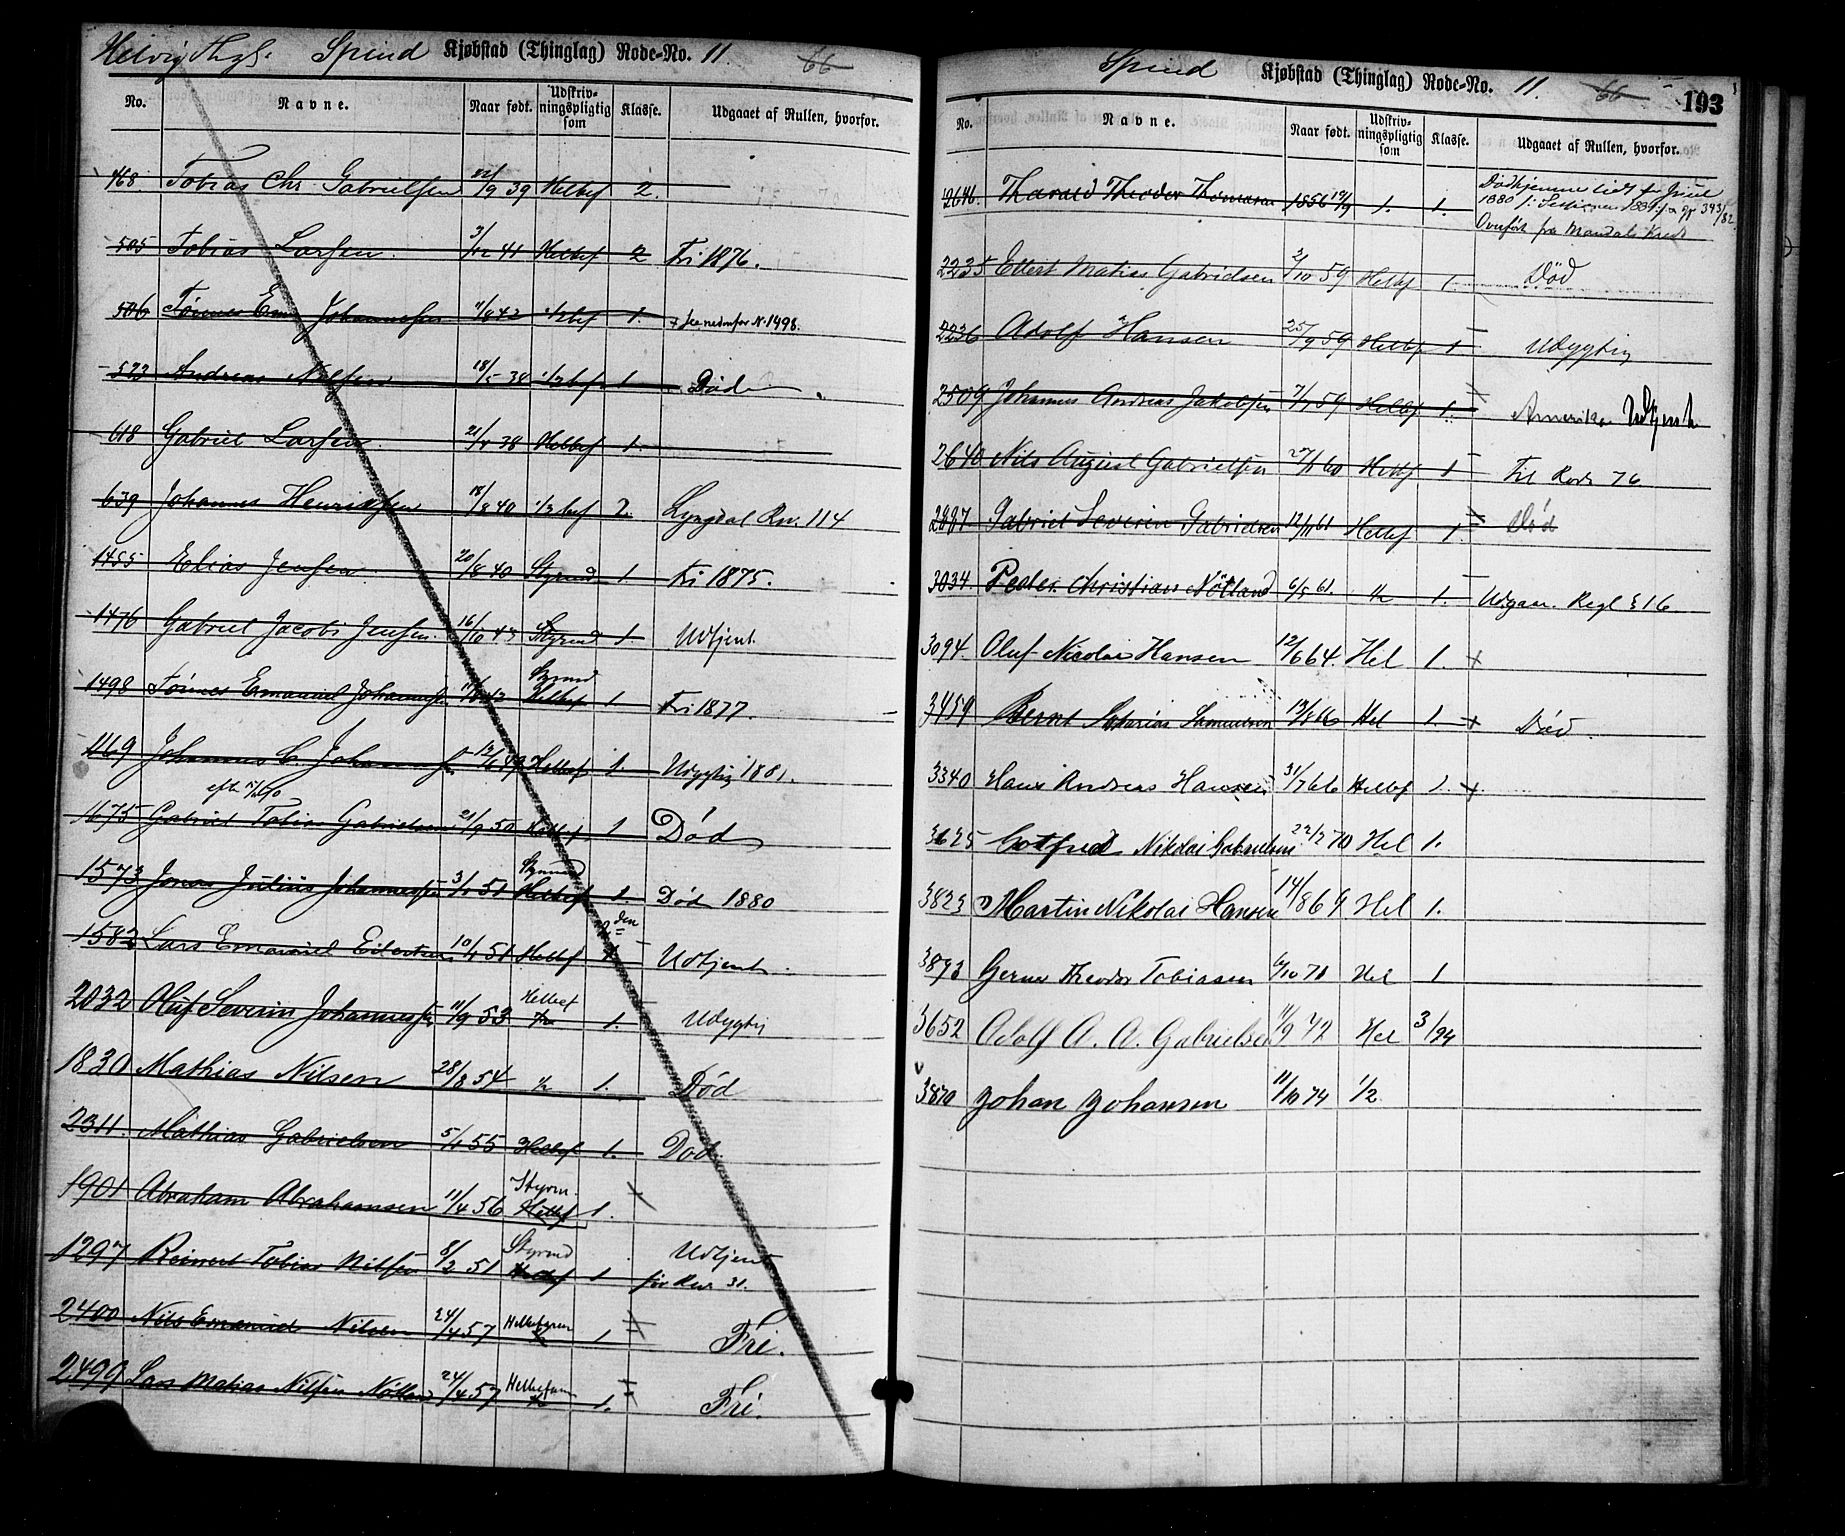 Helvig Thgl. Spind Kjøbstad (Thinglag) Rode-No. 11 66
No. Navne. Naar født. Udskrivningspligtig som Klasse. Udgaaet af Rullen, hvorfor.
468. Tobias Chr. Gabrielsen 22/9 39 Helbef 2.
505 Tobias Larsen 3/12 41 Helbef 2 Fri 1876.
506 Tønnes Em. Johannesen 11/8 42 1/2 bef 1. + se nedenfor N. 1498.
523 Andreas Nilsen 18/5 38 1/2 bef 1 Død
618 Gabriel Larsen 21/5 38 Helbef 1.
639 Johannes Henriksen 18/8 40 1/2 bef 2. Lyngdal Rn. 114
1455 Elias Jensen 20/8 40 Styrmd 1. Fri 1875.
1476 Gabriel Jacobs Jensen 16/10 43 Styrmd 1. Udtjent.
1498 Tønnes Emanuel Johannesen 11/8 42 Styrmd Helbef 1 Fri 1877.
1169 Johannes C. Johannesen 12/6 49 Helbef 1. Udygtig 1881.
1675 Gabriel Tobias Gabrielsen 21/9 50 Helbef 1 Død
1573 Jonas Julius Johannesen 3/1 51 Styrmd Helbef 1. Død 1880
1582 Lars Emanuel Eilertsen 10/4 51 Helbef Udtjent.
2032 Oluf Severin Johannesen 11/9 53 Helbef 1/2 1. Udygtig
1830 Mathias Nilsen 28/8 54 1/2 1. Død
2311. Mathias Gabrielsen 5/1 55 Helbef 1. Død
1901 Abraham Abrahamsen 11/4 56 Styrm. Helbef 1.
1297 Reinert Tobias Nilsen 8/2 51 Styrmd Helbef 1 Udtjent før Rul 31.
2400 Nils Emanuel Nilsen 24/4 57 1 Fri.
2499 Lars Matias Nilsen Nøtland 24/4 57 1. Fri.
Spind Kjøbstad (Thinglag) Rode-No. 11. 66 193
No. Navne. Naar født. Udskrivningspligtig som Klasse. Udgaaet af Rullen, hvorfor.
2646. Tharald Theodor Thomasen 1856 19/9 1. 1. 1880 393/82
Overført fra Mandals Kreds
2235 Eilert Matias Gabrielsen 2/10 59 Helbf 1. Død
2236 Adolf Hansen 25/9 59 Helbf 1 Udygtig
2509 Johannes Andreas Jakobsen 7/7 59 Helbf 1. Amerika Udtjent
2640 Nils August Gabrielsen 27/1 60 Helbf 1 Til Rode 76
2887 Gabriel Severin Gabrielsen 12/11 61 Helbf 1. Død
3034. Peder Christian Nøtland 6/5 61. 1/2 1. Udgaar Regl § 16
3094. Oluf Nicolai Hansen 12/6 64. Hel 1. +
3459 Bernt Samuelsen 19/8 66 Hel 1. + Død.
3340 Hans Andreas Hansen 31/7 66 Helbf 1. +
3625 Gotfred Nikolai Gabrielsen 22/2 70 Hel 1.
3823 Martin Nikolai Hansen 14/8 69 Hel 1.
3893 Gerner Theodor Tobiassen 6/10 71 Hel 1
3652 Adolf A. A. Gabrielsen 11/9 72 Hel 3/94
3870 Johan Johansen 11/10 74 1/2.